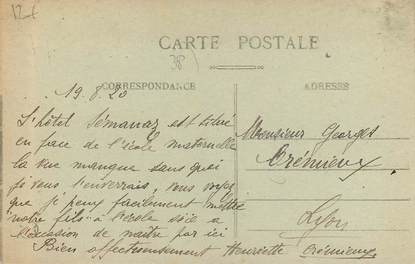 12€
CARTE POSTALE
38)
CORRESPONDANCE
ADRESSE
19.8.20
L'hôtel Sémanaz est situé
en face de l'école maternelle
la vue manque sans quoi
je vous l'enverrais, vous voyez
que je peux facilement mettre
notre fils à l'école si
l'occasion de naître par ici
Bien affectueusement Henriette Crémieux
Monsieur Georges
Crémieux
Lyon